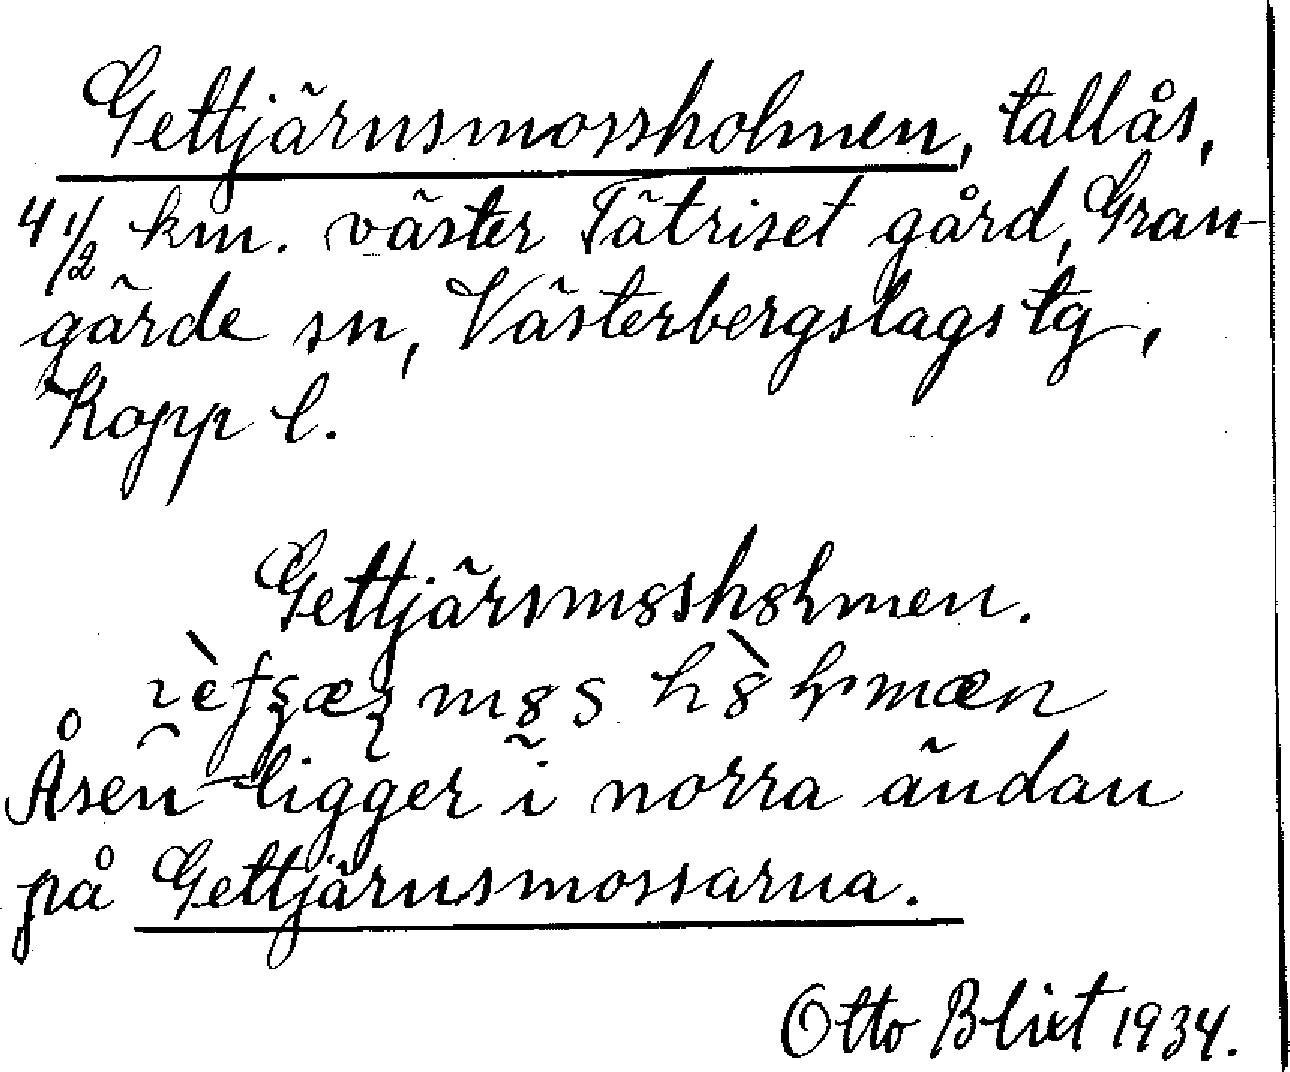 Gettjärnsmossholmen, tallås,
4 1/2 km. väster Tätriset gård, Gran-
gärde sn, Västerbergslags tg,
Kopp l.
Gettjärsm8sh8lmen.
Åsen ligger i norra ändan
på Gettjärnsmossarna.
Otto Blixt 1934.